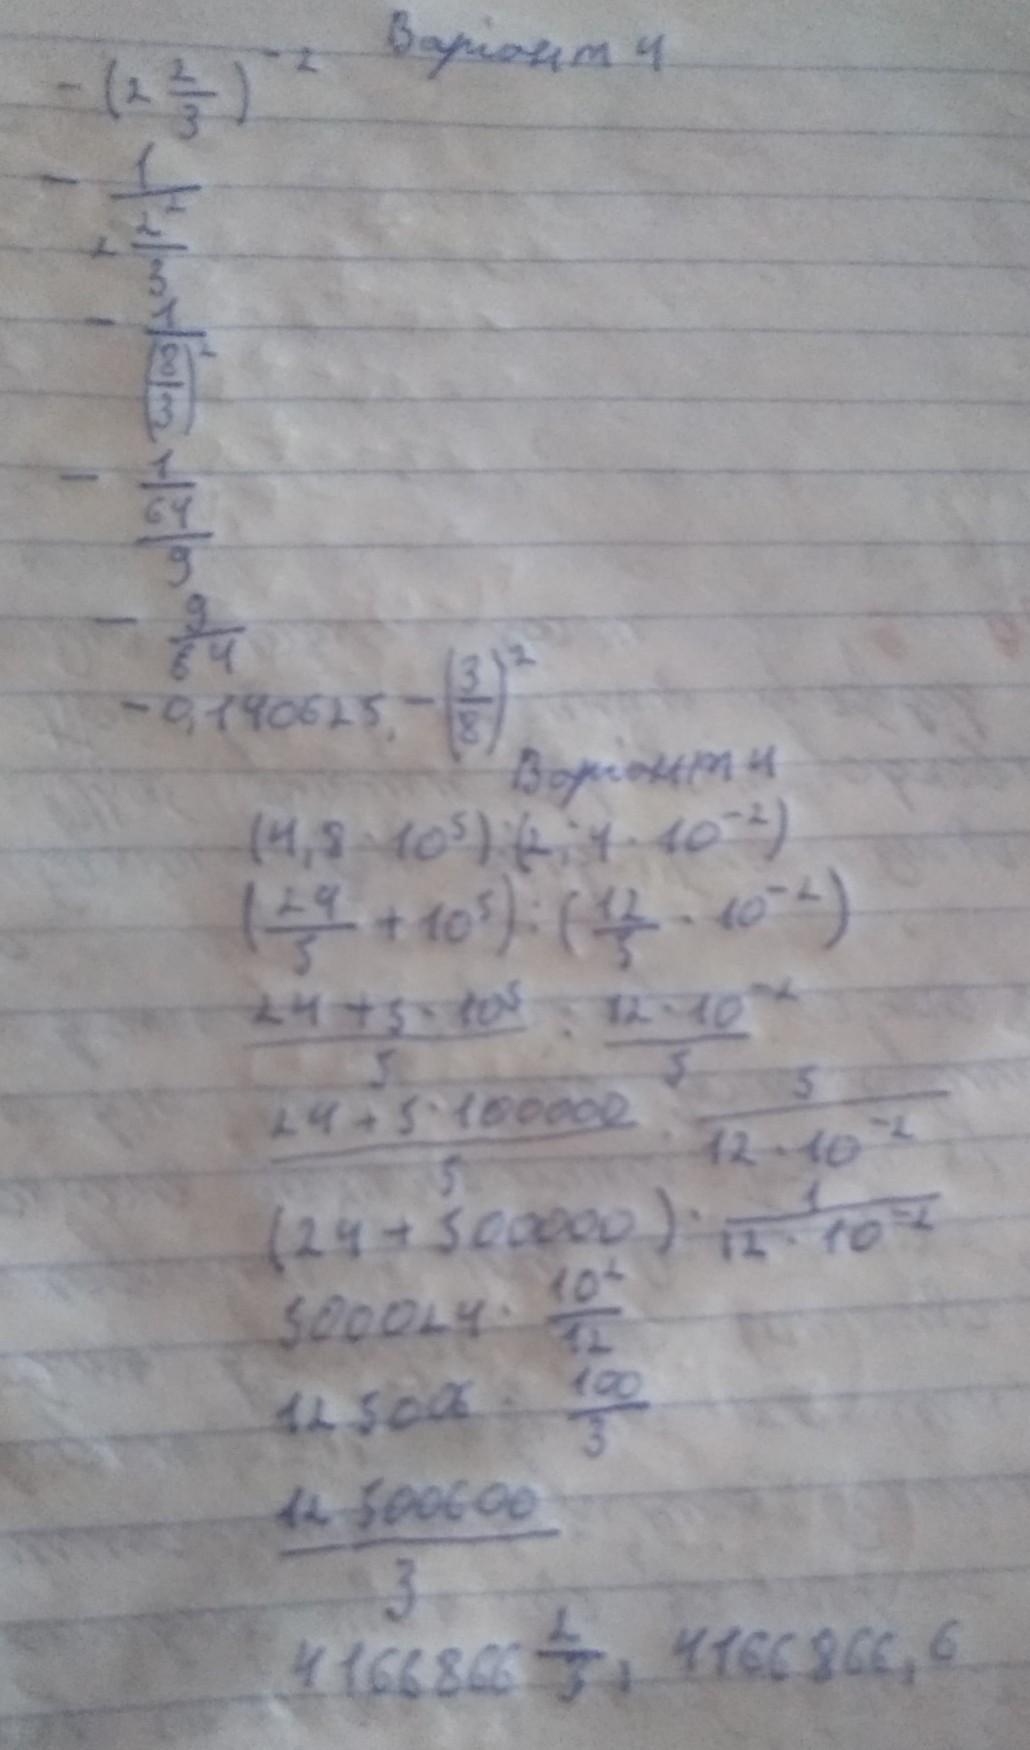 Варіант 4
- (2 2/3)^-2
- 1/(2 2/3)^2
- 1/(8/3)^2
- 1/(64/9)
- 9/64
-0,140625, -(3/8)^2
Варіант 4
(4,8 · 10^5) : (2,4 · 10^-2)
(24/5 + 10^5) : (12/5 · 10^-2)
(24 + 5 · 10^5)/5 : (12 · 10^-2)/5
(24 + 5 · 100000)/5 · 5/(12 · 10^-2)
(24 + 500000) · 1/(12 · 10^-2)
500024 · 10^2/12
125006 · 100/3
12500600/3
4166866 2/3, 4166866,6